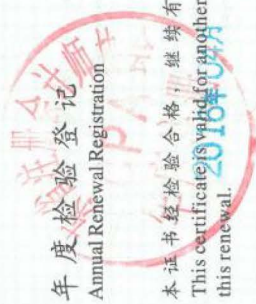 年度检验登记
Annual Renewal Registration
本证书经检验合格，继续有
This certificate is valid for another
this renewal.
2016年04月